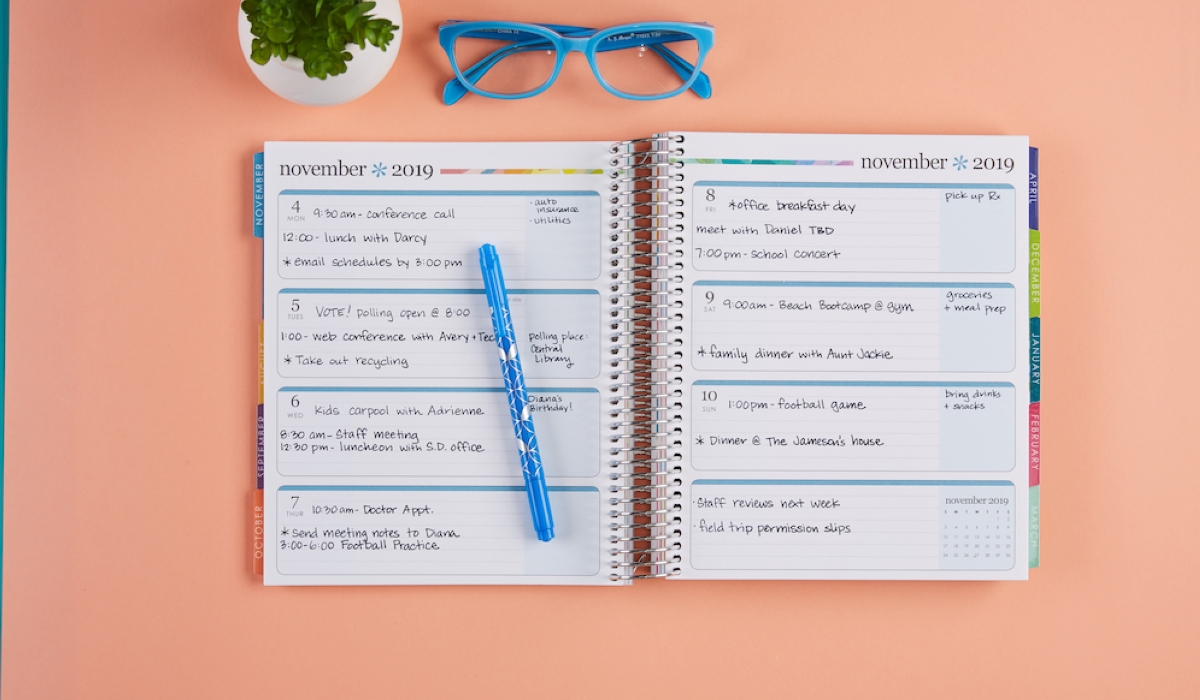 november * 2019
4
MON
9:30 am - conference call
12:00 - lunch with Darcy
* email schedules by 3:00 pm
· auto
insurance
· utilities
5
TUES
VOTE! polling open @ 8:00
1:00 - web conference with Avery + Tech
* Take out recycling
polling place:
Central
Library
6
WED
Kids carpool with Adrienne
8:30 am - Staff meeting
12:30 pm - luncheon with S.D. office
Diana's
Birthday!
7
THUR
10:30 am - Doctor Appt.
* Send meeting notes to Diana
3:00-6:00 Football Practice
november * 2019
8
FRI
*office breakfast day
meet with Daniel TBD
7:00 pm - school concert
pick up Rx
9
SAT
9:00 am - Beach Bootcamp @ gym
* family dinner with Aunt Jackie
groceries
+ meal prep
10
SUN
1:00 pm - football game
* Dinner @ The Jameson's house
bring drinks
+ snacks
· Staff reviews next week
· field trip permission slips
november 2019
NOVEMBER
AUGUST
SEPTEMBER
OCTOBER
APRIL
DECEMBER
JANUARY
FEBRUARY
MARCH